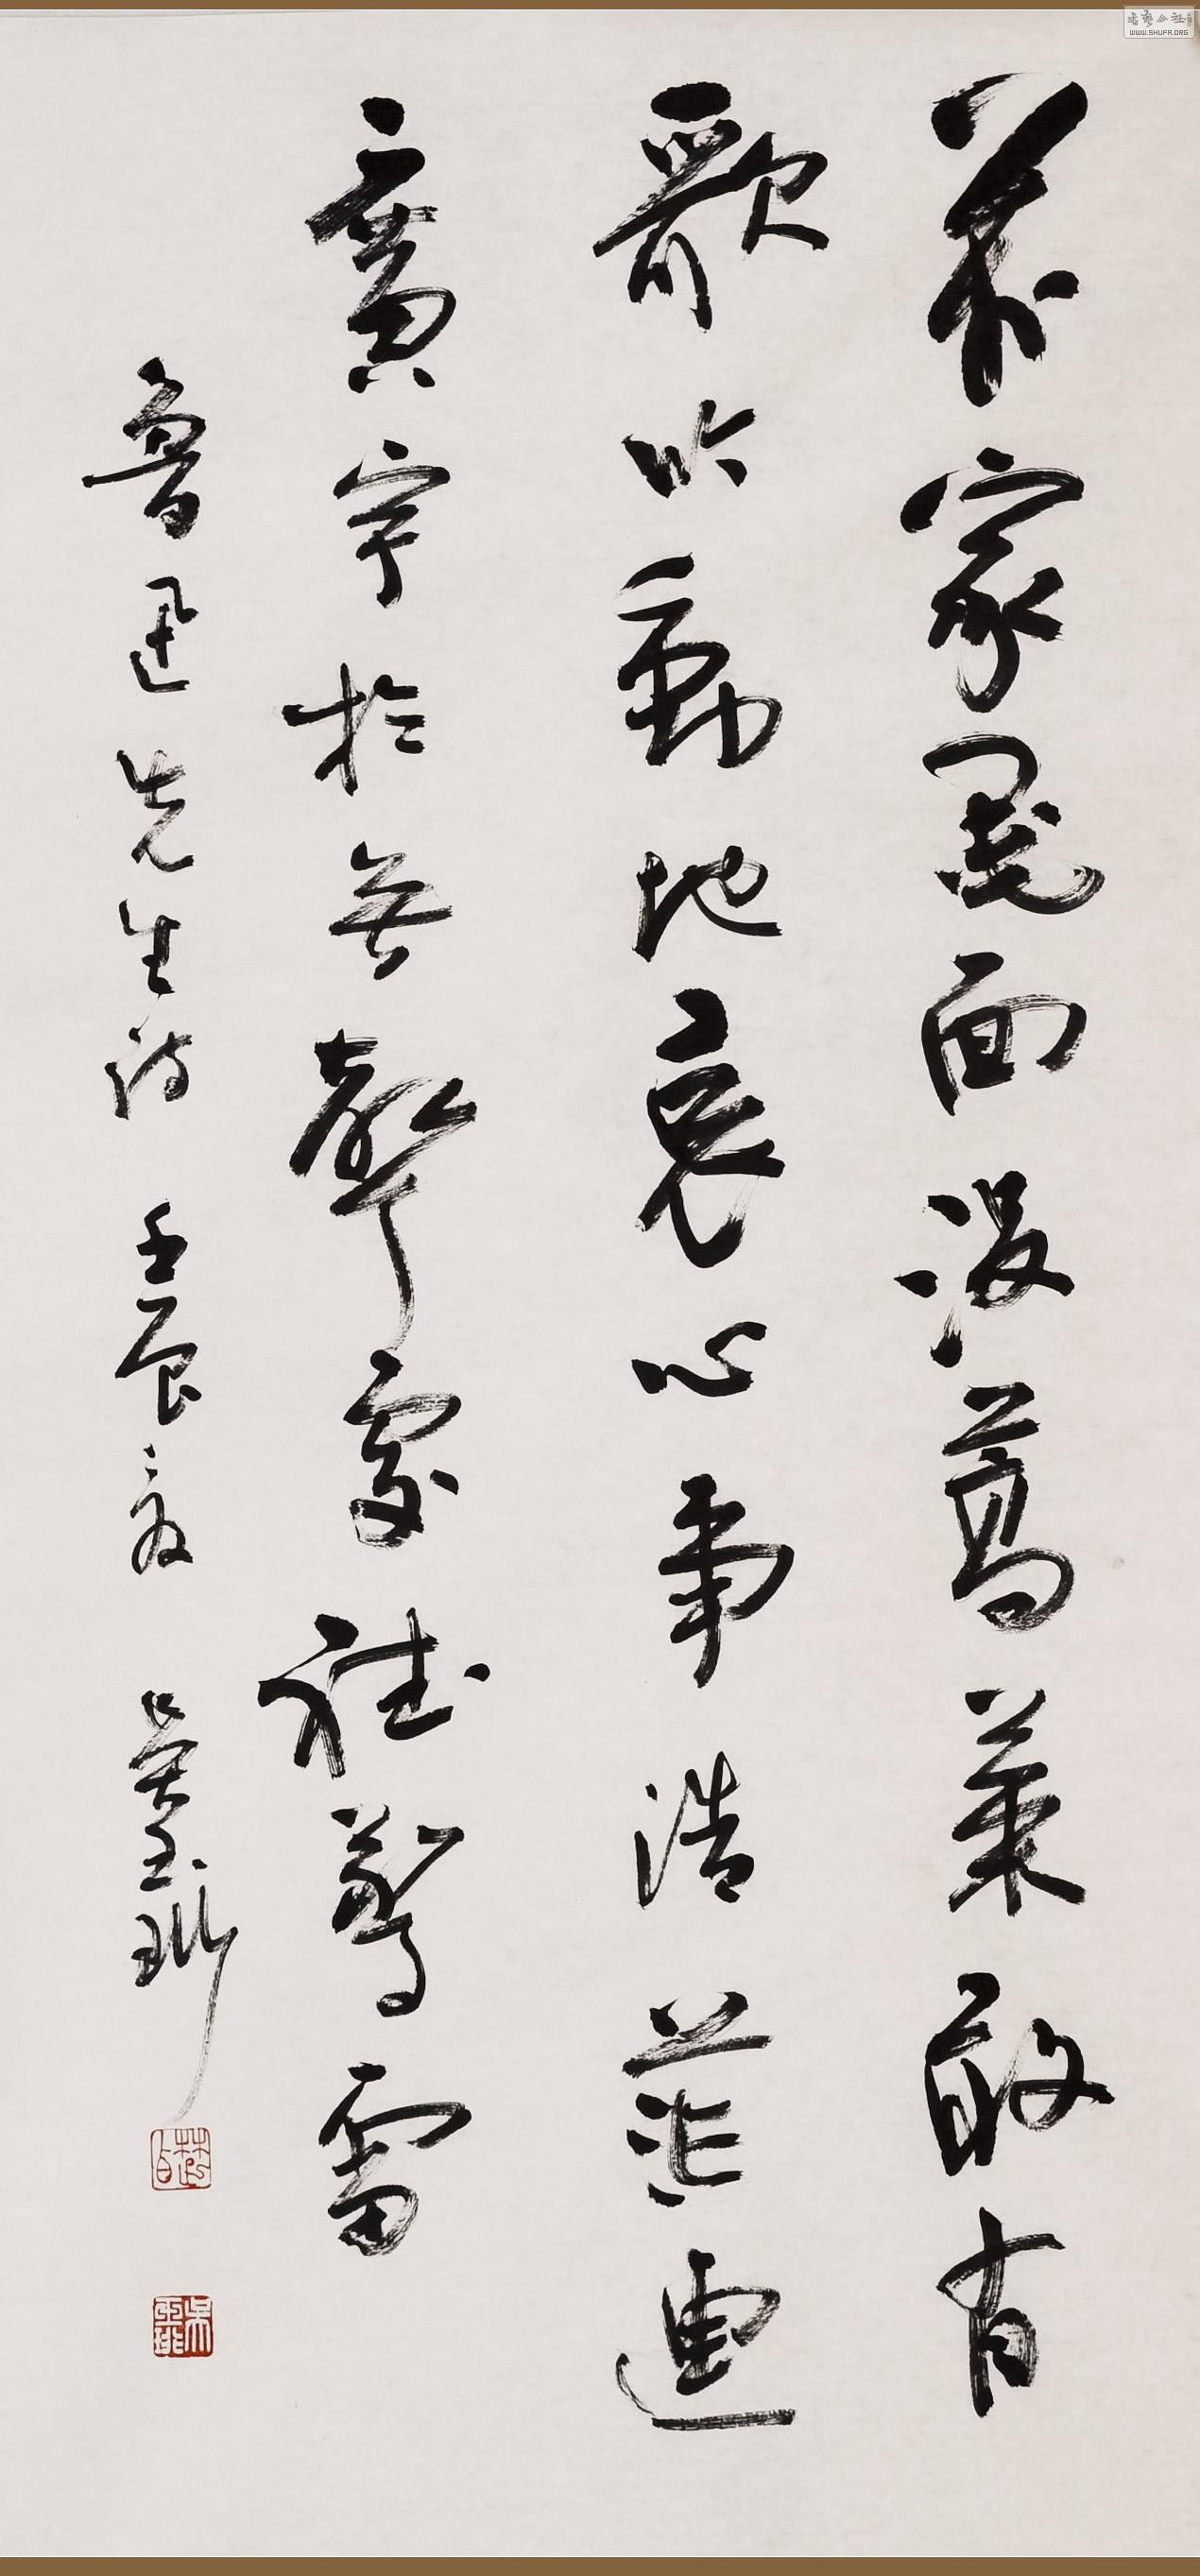 萬家墨面没蒿萊敢有
歌吟動地哀心事浩茫連
廣宇於無聲處聽驚雷
魯迅先生詩 壬辰夏 吴玉琳
WWW.SHUFA.ORG